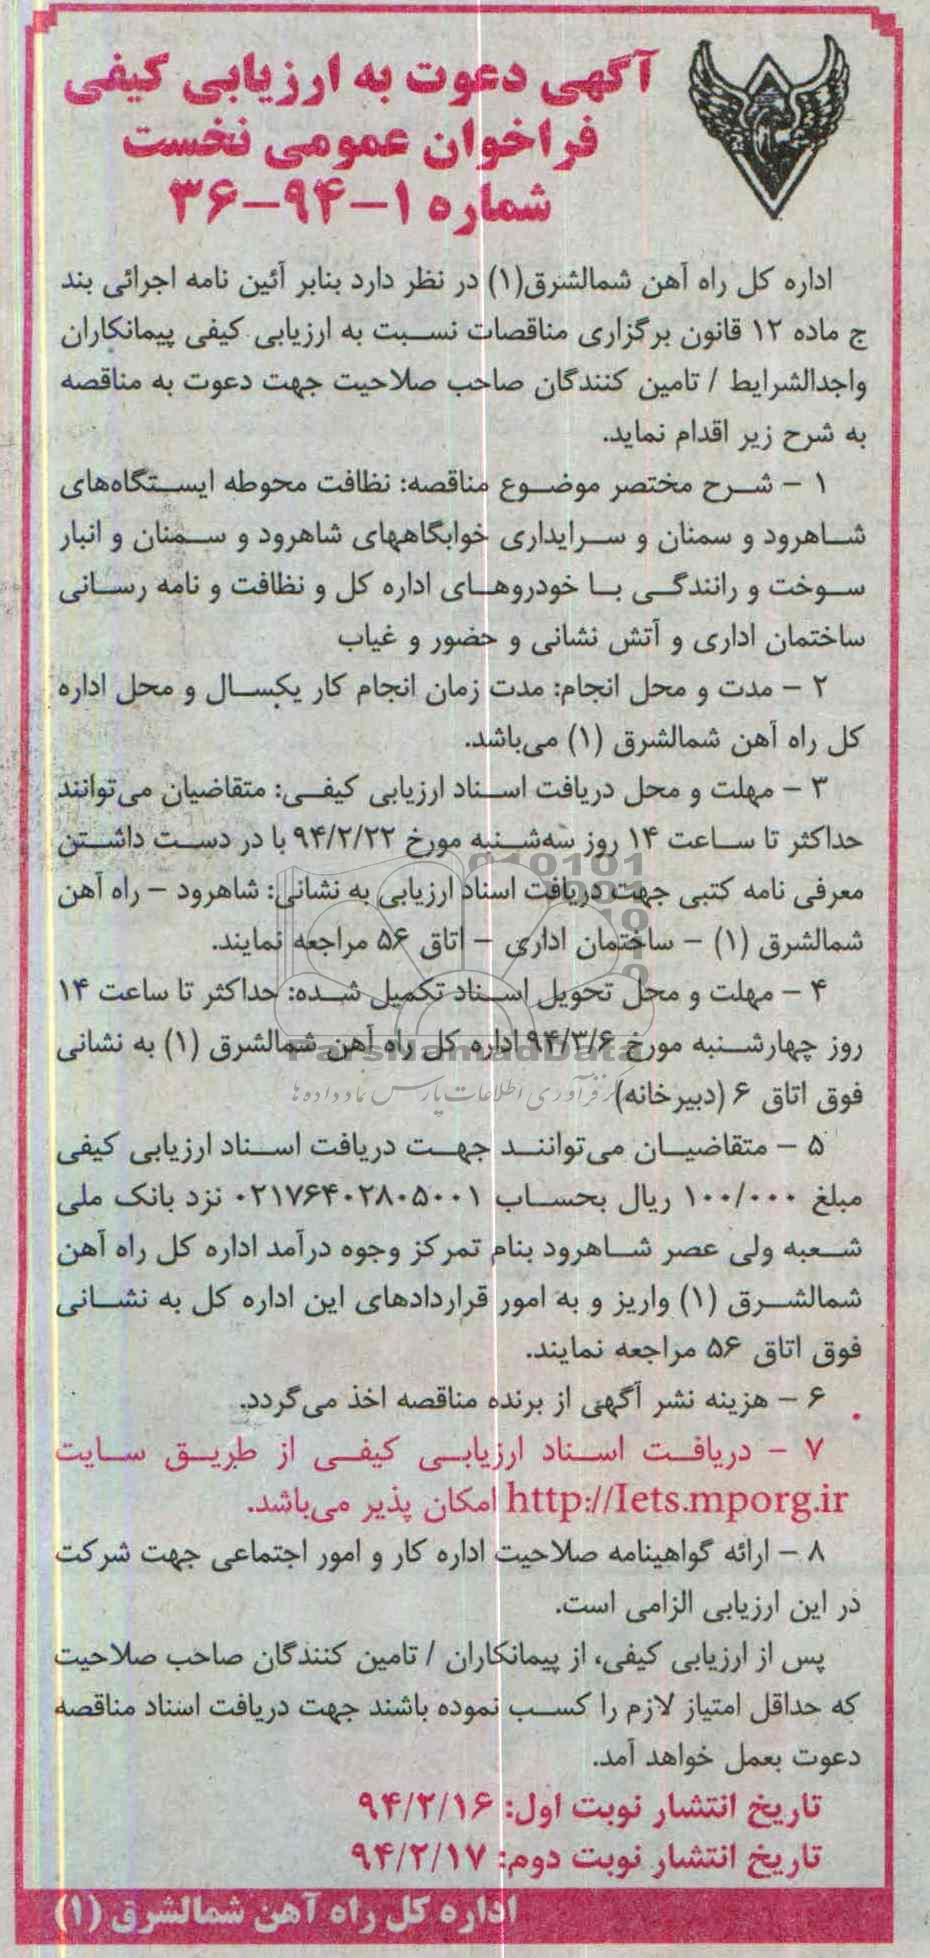 آگهی دعوت به ارزیابی کیفی
فراخوان عمومی نخست
شماره ۱-۹۴-۳۶
اداره کل راه آهن شمالشرق(۱) در نظر دارد بنابر آئین نامه اجرائی بند
ج ماده ۱۲ قانون برگزاری مناقصات نسبت به ارزیابی کیفی پیمانکاران
واجدالشرایط / تامین کنندگان صاحب صلاحیت جهت دعوت به مناقصه
به شرح زیر اقدام نماید.
۱ - شرح مختصر موضوع مناقصه: نظافت محوطه ایستگاه‌های
شاهرود و سمنان و سرایداری خوابگاههای شاهرود و سمنان و انبار
سوخت و رانندگی با خودروهای اداره کل و نظافت و نامه رسانی
ساختمان اداری و آتش نشانی و حضور و غیاب
۲ - مدت و محل انجام: مدت زمان انجام کار یکسال و محل اداره
کل راه آهن شمالشرق (۱) می‌باشد.
۳ - مهلت و محل دریافت اسناد ارزیابی کیفی: متقاضیان می‌توانند
حداکثر تا ساعت ۱۴ روز سه‌شنبه مورخ ۹۴/۲/۲۲ با در دست داشتن
معرفی نامه کتبی جهت دریافت اسناد ارزیابی به نشانی: شاهرود - راه آهن
شمالشرق (۱) - ساختمان اداری - اتاق ۵۶ مراجعه نمایند.
۴ - مهلت و محل تحویل اسناد تکمیل شده: حداکثر تا ساعت ۱۴
روز چهارشنبه مورخ ۹۴/۳/۶ اداره کل راه آهن شمالشرق (۱) به نشانی
ParsNamadData
فوق اتاق ۶ (دبیرخانه)
مرکز فرآوری اطلاعات پارس نماد داده ها
۵ - متقاضیان می‌توانند جهت دریافت اسناد ارزیابی کیفی
مبلغ ۱۰۰/۰۰۰ ریال بحساب ۰۲۱۷۶۴۰۲۸۰۵۰۰۱ نزد بانک ملی
شعبه ولی عصر شاهرود بنام تمرکز وجوه درآمد اداره کل راه آهن
شمالشرق (۱) واریز و به امور قراردادهای این اداره کل به نشانی
فوق اتاق ۵۶ مراجعه نمایند.
۶ - هزینه نشر آگهی از برنده مناقصه اخذ می‌گردد.
۷ - دریافت اسناد ارزیابی کیفی از طریق سایت
http://Iets.mporg.ir امکان پذیر می‌باشد.
۸ - ارائه گواهینامه صلاحیت اداره کار و امور اجتماعی جهت شرکت
در این ارزیابی الزامی است.
پس از ارزیابی کیفی، از پیمانکاران / تامین کنندگان صاحب صلاحیت
که حداقل امتیاز لازم را کسب نموده باشند جهت دریافت اسناد مناقصه
دعوت بعمل خواهد آمد.
تاریخ انتشار نوبت اول: ۹۴/۲/۱۶
تاریخ انتشار نوبت دوم: ۹۴/۲/۱۷
اداره کل راه آهن شمالشرق (۱)